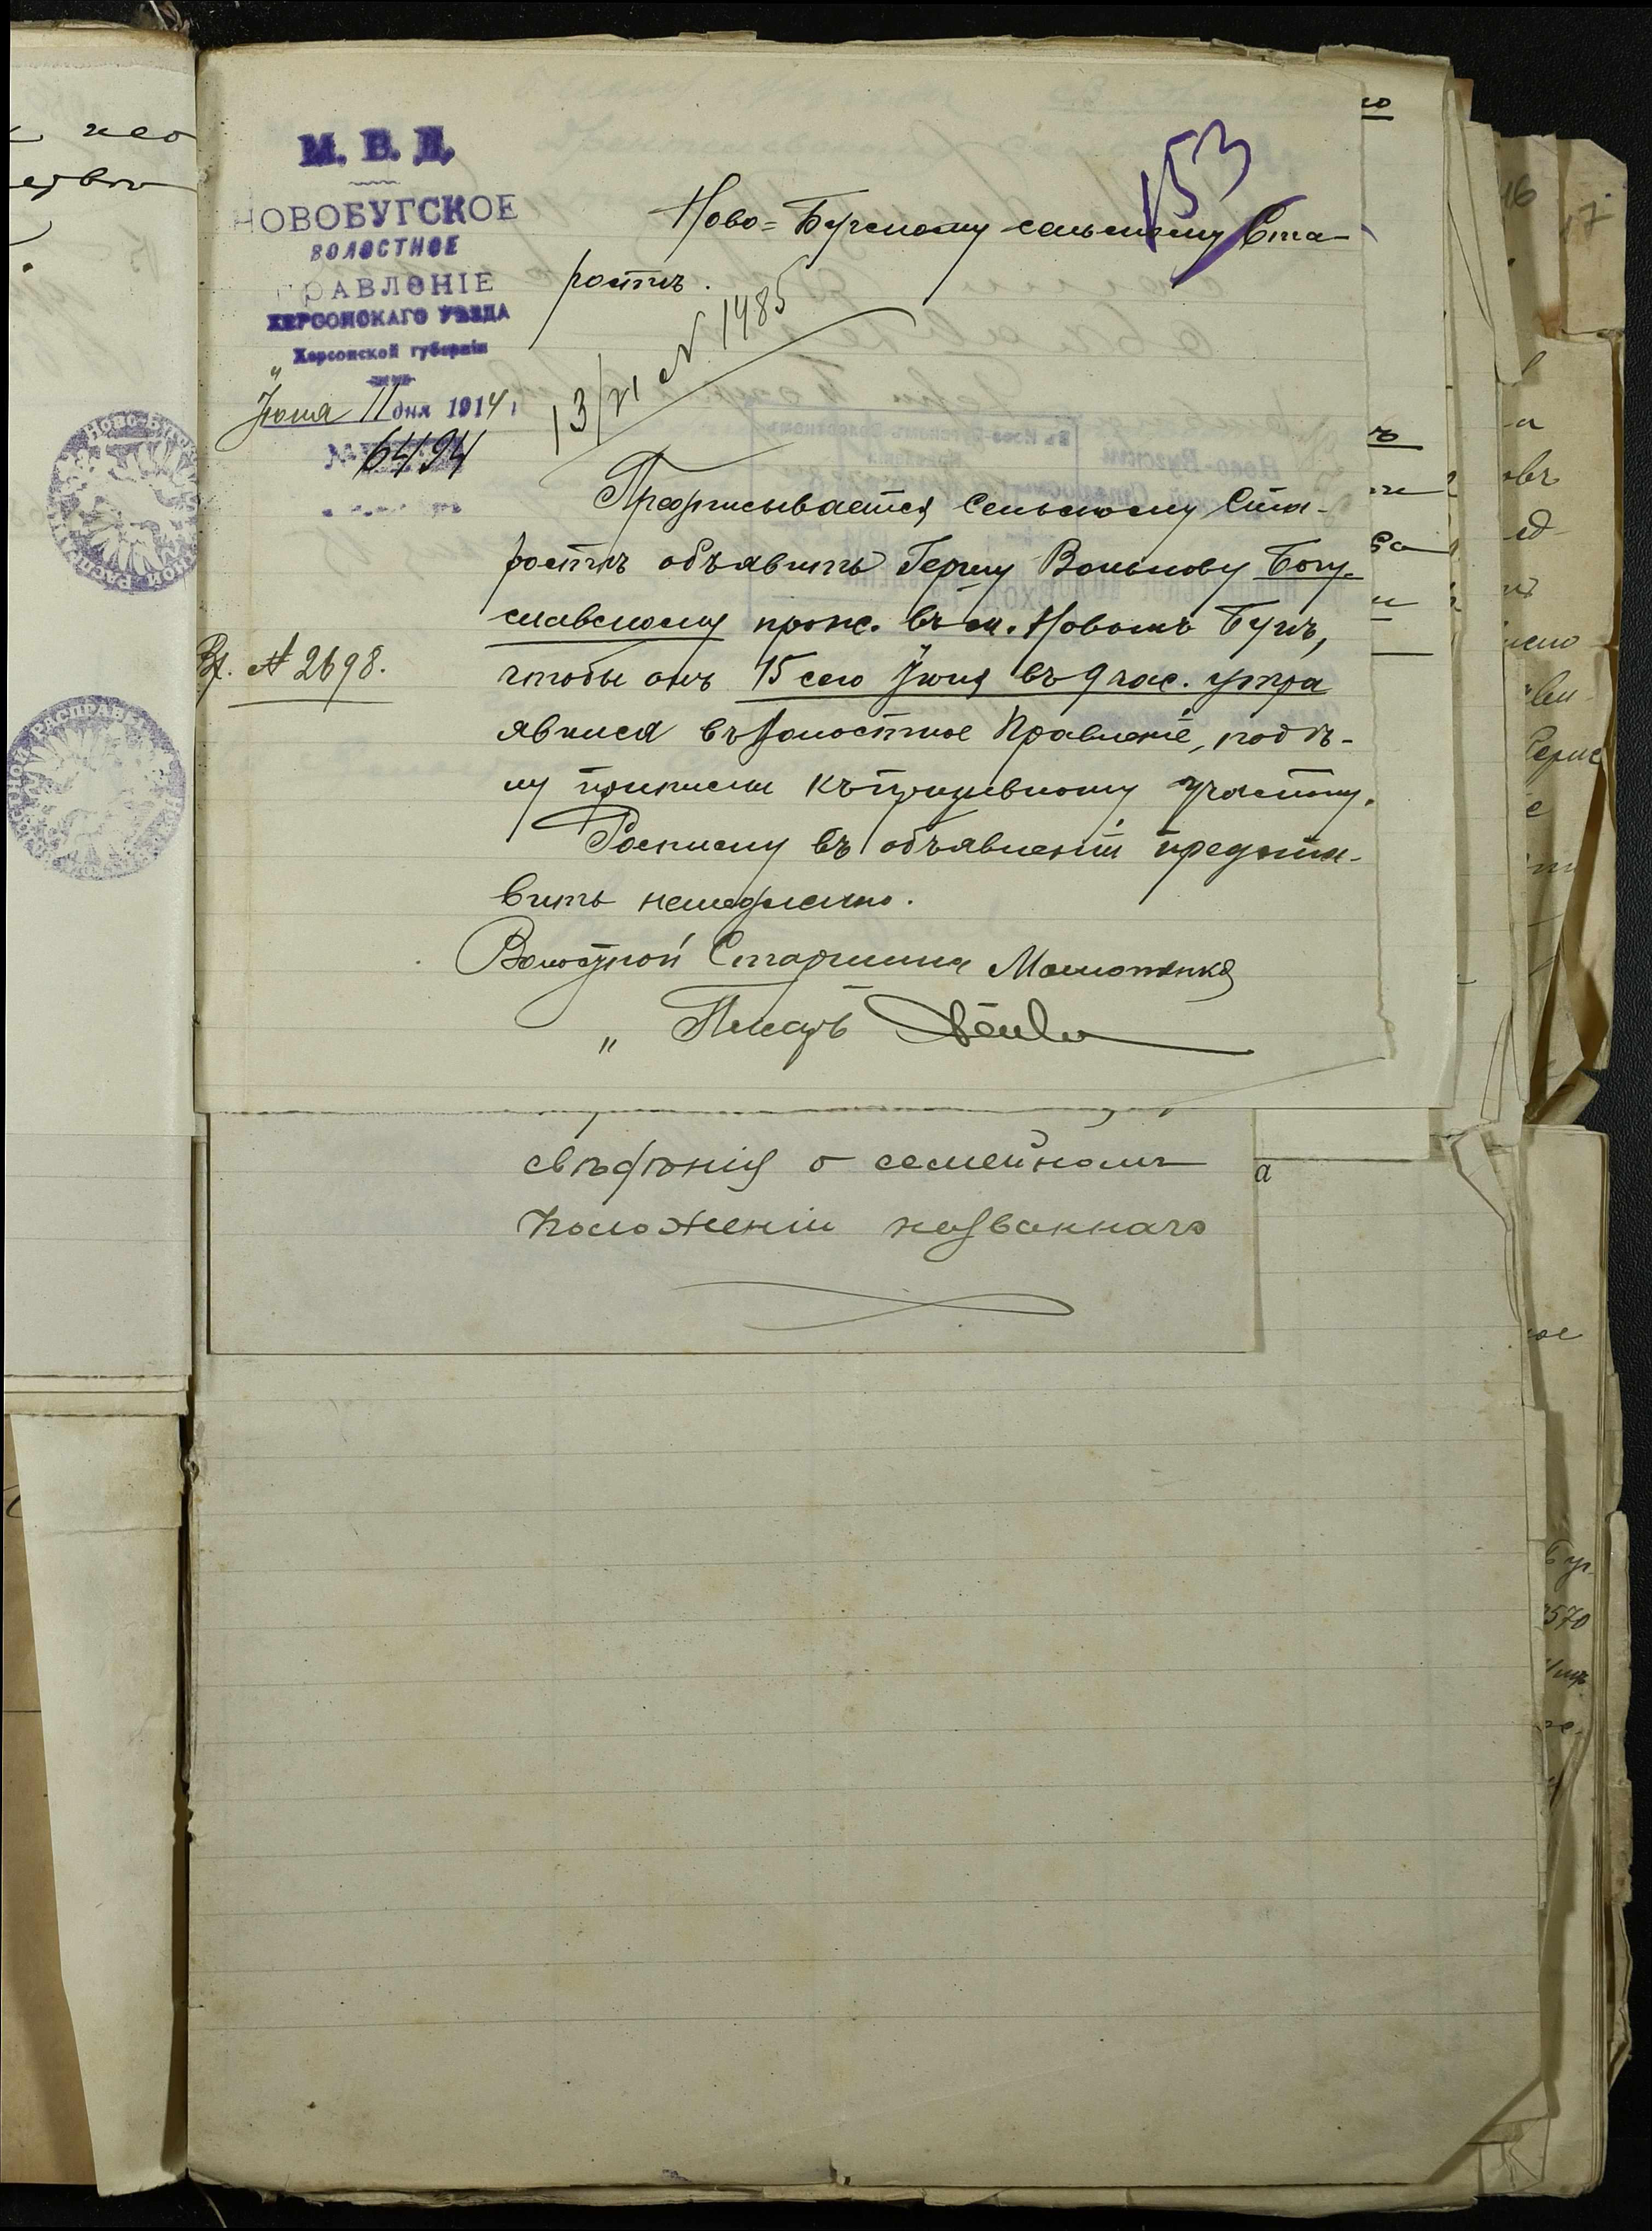 М. В. Д.
НОВОБУГСКОЕ
ВОЛОСТНОЕ
ПРАВЛЕНІЕ
ХЕРСОНСКАГО УѢЗДА
Херсонской губерніи
Іюня 11 дня 1914 г.
№ 6494
Вх. № 2698.
153
Ново=Бугскому сельскому Ста-
ростѣ.
13/VI № 1485
Предписывается Сельскому Ста-
ростѣ объявить Гершу Волькову Богу-
славскому прож. въ м. Новомъ Бугѣ,
чтобы онъ 15 сего Іюня въ 9 час. утра
явился въ Волостное Правленіе, по дѣ-
лу приписки къ призывному участку.
Росписку въ объявленіи предста-
вить немедленно.
Волостной Старшина
" Писарь
свѣдѣнія о семейномъ
положеніи названнаго